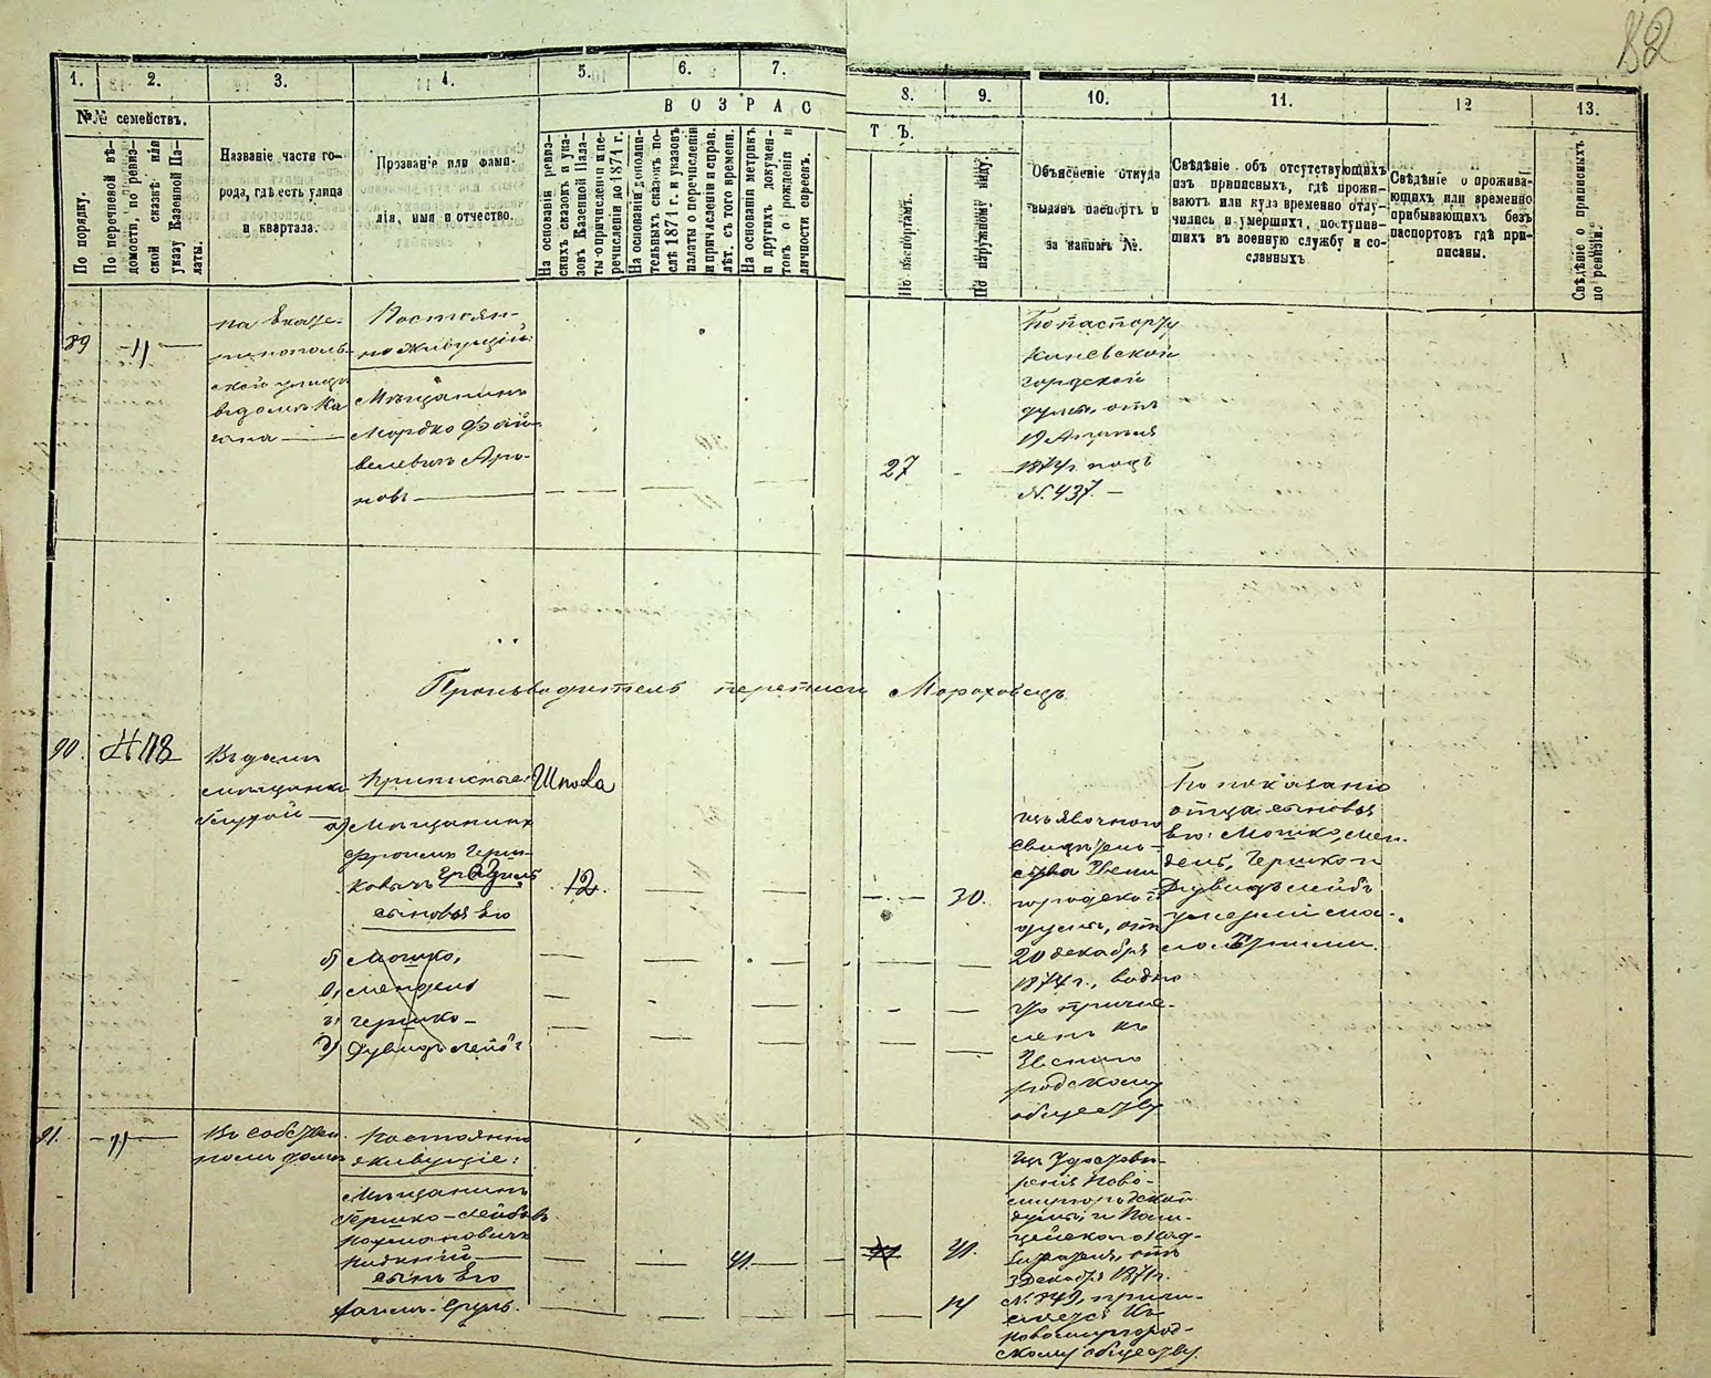 82
1.
2.
3.
4.
5.
6.
7.
8.
9.
10.
11.
12
13.
№№ семействъ.
ВОЗРАС
ТЪ.
По порядку.
По перечневой вѣ-
домости, по ревиз-
ской сказкѣ или
указу Казенной Па-
латы.
Названіе части го-
рода, гдѣ есть улица
и квартала.
Прозваніе или фами-
лія, имя и отчество.
На основаніи ревиз-
скихъ сказокъ и ука-
зовъ Казенной Пала-
ты о причисленіи и пе-
речисленіи до 1874 г.
На основаніи дополни-
тельныхъ сказокъ по-
слѣ 1874 г. и указовъ
палаты о перечисленіи
и причисленіи и справ.
лѣт. съ того времени.
На основаніи метрикъ
и другихъ докумен-
товъ о рожденіи и
личности евреевъ.
По паспортамъ.
По наружному виду.
Объясненіе откуда
выданъ паспортъ и
за какимъ №.
Свѣдѣніе объ отсутствующихъ
изъ приписныхъ, гдѣ прожи-
ваютъ или куда временно отлу-
чились и умершихъ, поступив-
шихъ въ военную службу и со-
сланныхъ
Свѣдѣніе о прожива-
ющихъ или временно
прибывающихъ безъ
паспортовъ гдѣ при-
писаны.
Свѣдѣніе о приписныхъ
по ревизіи.
89
—//—
на Екате-
ринополь-
ской улицѣ
въ домѣ Ка
гана —
Постоян-
но живущій:
Мѣщанинъ
Мордко Фай-
велевичъ Аро-
новъ —
27
По паспорту
Каневской
городской
думы, отъ
19 Апреля
1874 г. подъ
№. 437. —
Производитель переписи Мороховецъ
90.
118
Въ домѣ
мѣщанки
Приписные:
Шпола
а) Мѣщанинъ
Фроимъ Герш-
ковичъ
12.
сыновья его
б) Мошко,
в) Мендель
г) Гершко —
д) Дувидъ Лейбъ
30.
изъ явочного
свидѣтель-
ства Звени
городской
думы, отъ
20 декабря
1874 г., видно
что причис-
ленъ къ
Звениго
родскому
обществу
По показанію
отца сыновья
его: Мошко, Мен-
дель, Гершко и
Дувидъ Лейбъ
умерли ма-
лолѣтними.
91.
—//—
Въ собствен.
номъ домѣ
Постоянно
живущіе:
Мѣщанинъ
Гершко-Лейбъ
Нахмановичъ
сынъ его
41.
41.
14
Изъ удостове-
ренія Ново-
миргородской
думы, и Поли-
цейского Над-
зирателя, отъ
3 Декабря 1871 г.
№. 749, причи-
сляется къ
Новомиргород-
скому обществу.